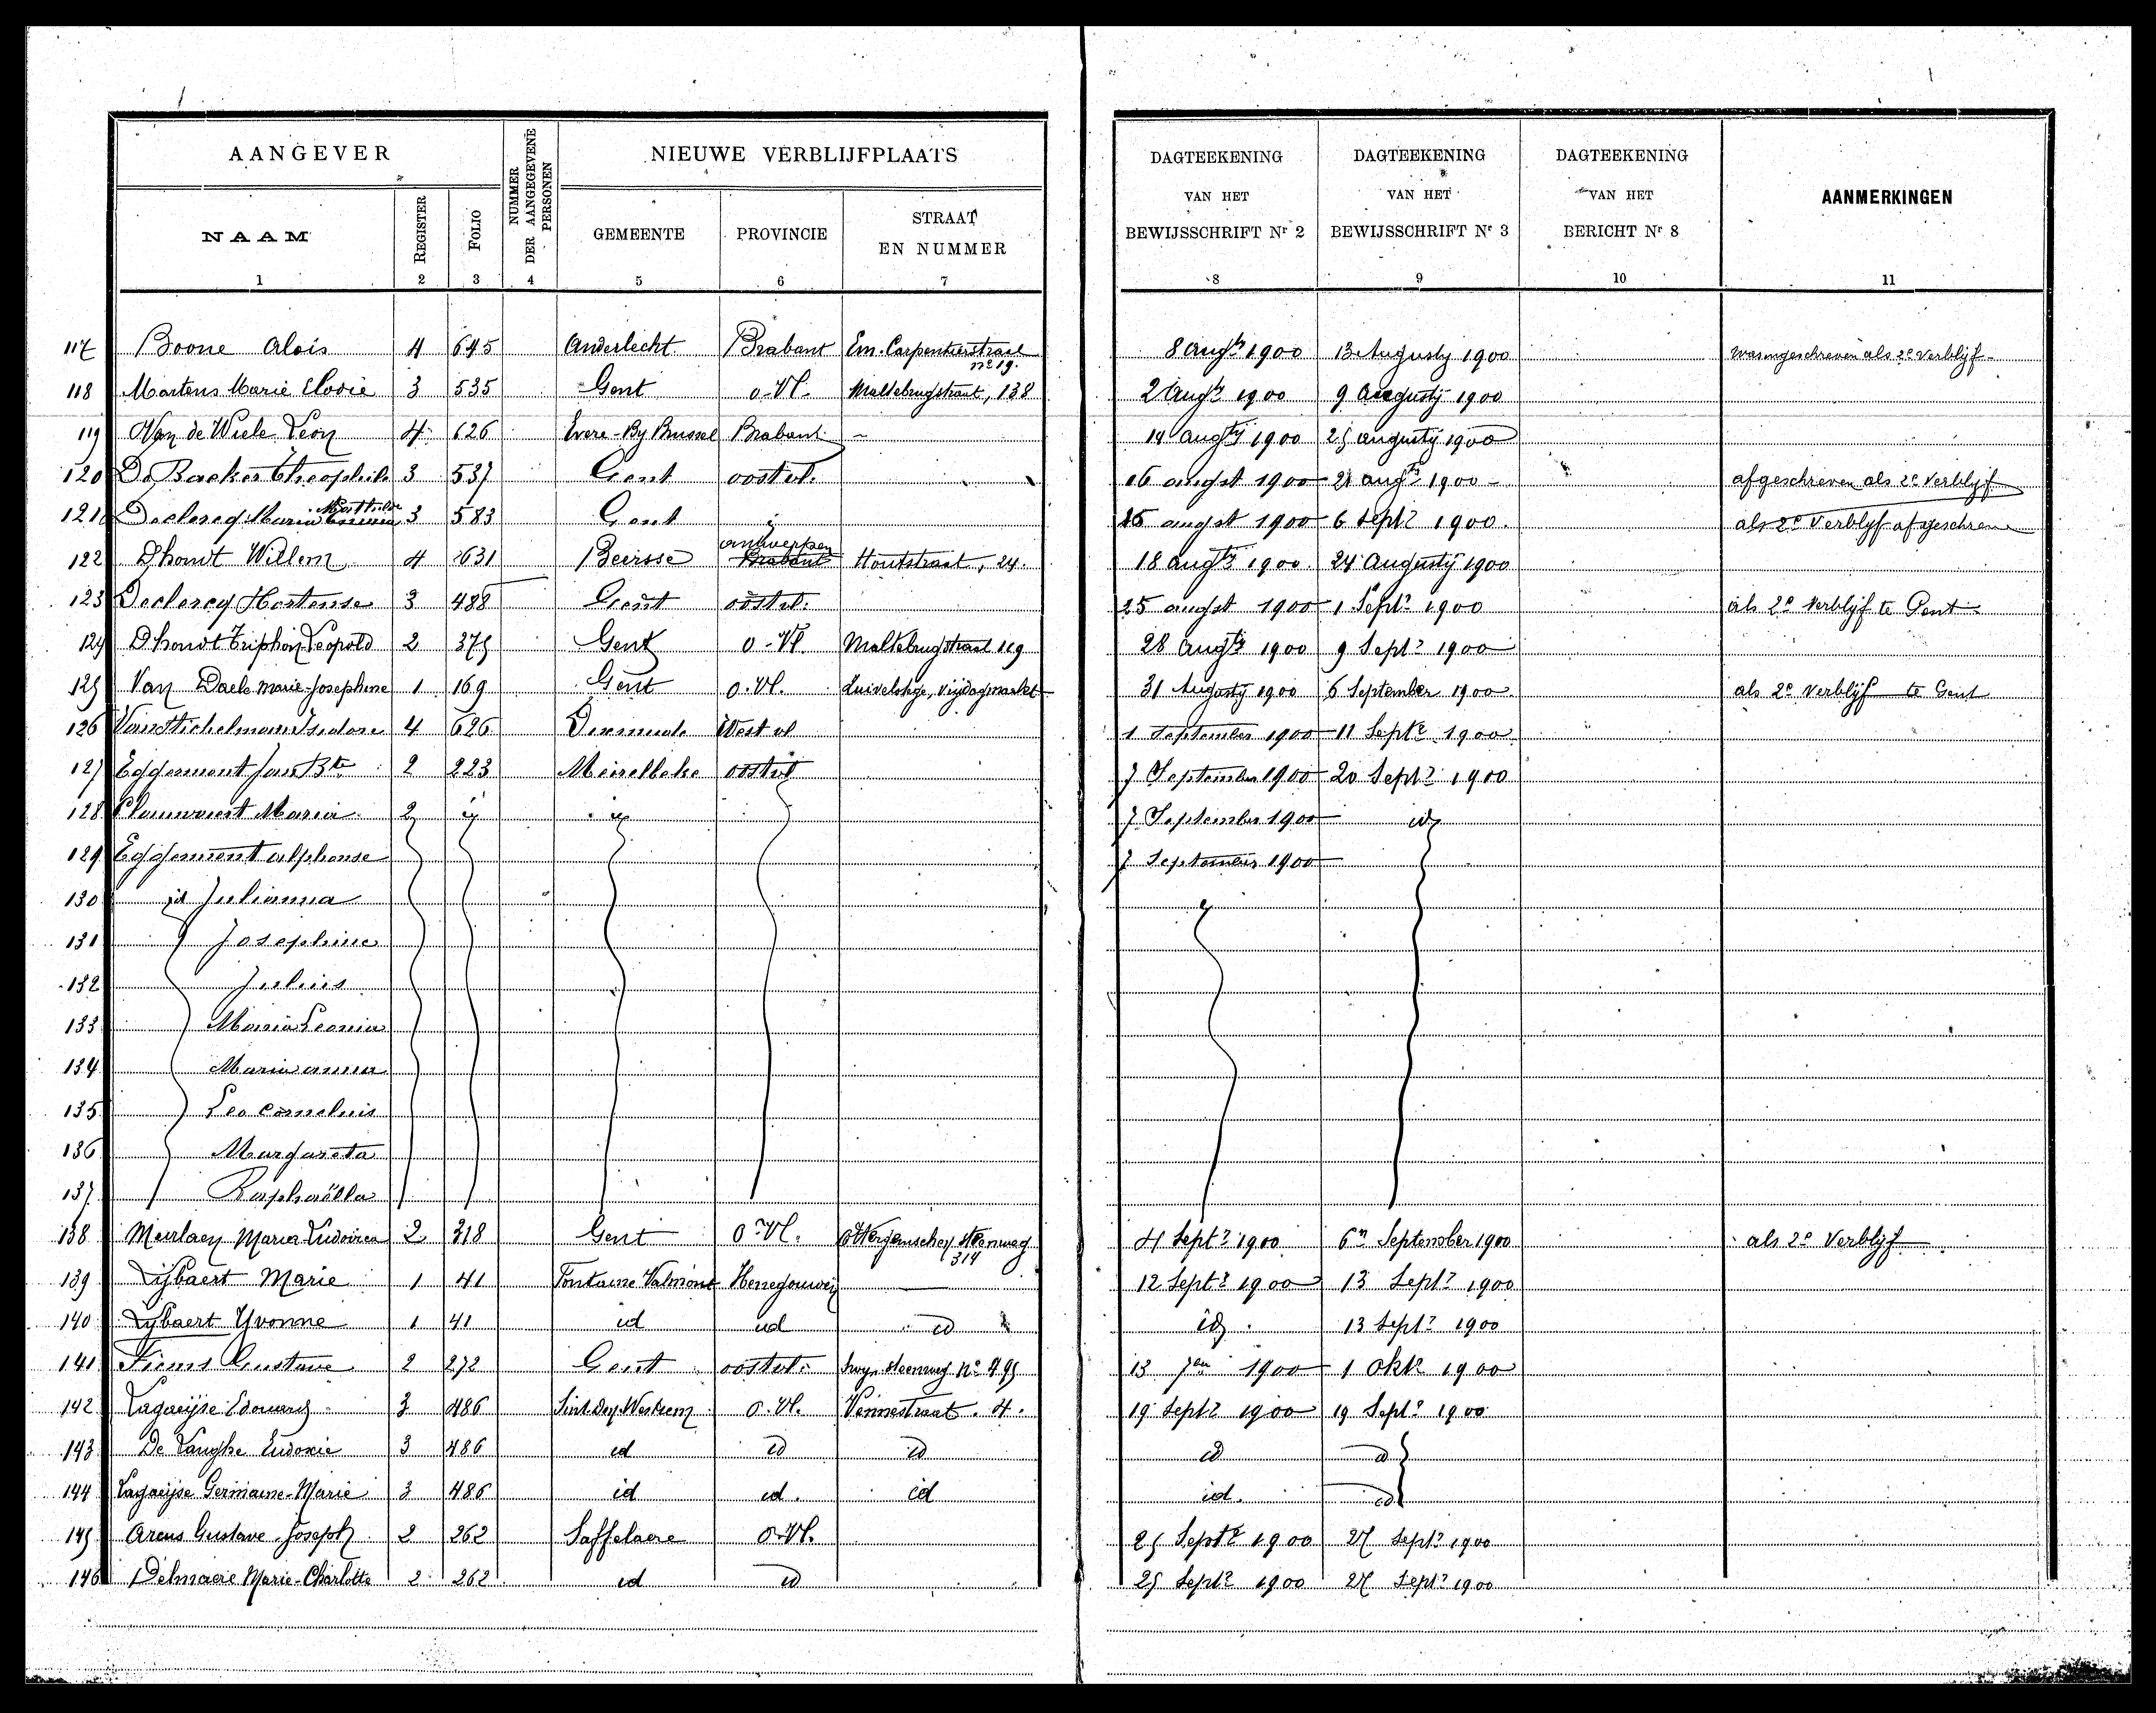 AANGEVER
NUMMER DER AANGEGEVENE PERSONEN
NIEUWE VERBLIJFPLAATS
DAGTEEKENING VAN HET BEWIJSSCHRIFT Nr 2
DAGTEEKENING VAN HET BEWIJSSCHRIFT Nr 3
DAGTEEKENING VAN HET BERICHT Nr 8
AANMERKINGEN
NAAM REGISTER FOLIO GEMEENTE PROVINCIE STRAAT EN NUMMER
1 2 3 4 5 6 7 8 9 10 11
117 Boone Alois 4 645 Anderlecht Brabant Em. Carpentierstraat no 19. 8 augty 1900 13 Augusty 1900 was ingeschreven als 2e verblijf
118 Martens Marie Elodie 3 535 Gent o-Vl. Maltebrugstraat, 138 2 Augty 1900 9 Augustij 1900
119 Van de Wiele Leon 4 626 Evere-By Brussel Brabant - 14 augtij 1900 25 augustij 1900
120 De Backer Theophile 3 537 Gent oostvl. 16 augst 1900 21 augts 1900 afgeschreven als 2e Verblijf
121 Declercq Maria Mathilde 3 583 Gent id 25 augst 1900 6 Sept? 1900. als 2e Verblijf afgeschreven
122 Dhondt Willem 4 631 Beirsse antwerpen Brabant Houtstraat, 24. 18 augty 1900 24 Augustij 1900
123 Declercq Hortense 3 488 Gent oostvl. 25 augst 1900 1 Sept? 1900 als 2e Verblijf te Gent
124 Dhondt Triphon Leopold 2 375 Gent o-Vl. Maltebrugstraat 119 28 augty 1900 9 Sept? 1900
125 Van Daele Marie-Josephine 1 169 Gent o.Vl. Vrijdagmarkt 31 Augustij 1900 6 September 1900 als 2e verblijf te Gent
126 Isidore 4 626 Dixmude West vl 1 September 1900 11 Septe 1900
127 Eggermont Jan Bte 2 223 Meirelbeke oostvl 7 September 1900 20 Sept? 1900
128 Maria 2 id id 7 September 1900 id
129 Eggermont alphonse 7 September 1900
130 id Julianna id
131 Josephine
132 Julius
133 Maria Leonia
134 Maria anna
135 Leo Cornelius
136 Margareta
137 Raphaëlla
138 Meirlaen Maria Ludovica 2 318 Gent O-Vl. steenweg 314 4 Sept? 1900 6n September 1900 als 2e Verblijf
139 Lijbaert Marie 1 41 Fontaine Valmont Henegouwen — 12 Sept? 1900 13 Sept? 1900
140 Lybaert Yvonne 1 41 id id id id. 13 Sept? 1900
141 Fiems Gustave 2 272 Gent oostvl. steenweg No 495 13 7er 1900 1 Okt 1900
142 Lagaeijse Edouard 3 486 Sint Den. Westrem o.Vl. Vennestraat. 4. 19 Sept? 1900 19 Sept? 1900
143 De Langhe Eudoxie 3 486 id id id id id
144 Lagaeijse Germaine-Marie 3 486 id id. id id. id
145 Arens Gustave Joseph 2 262 Saffelaere o.Vl. 25 Septe 1900 27 Sept? 1900
146 Delmaere Marie-Charlotte 2 262 id id 25 Sept? 1900 27 Sept? 1900